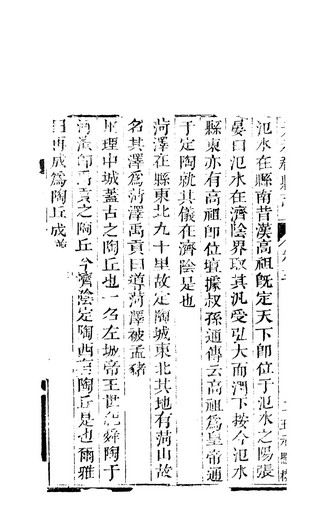 氾水在縣南昔漢高祖既定天下卽位于氾水之陽張
晏曰氾水在濟陰界取其汎愛弘大而潤下按今氾水
縣東亦有高祖卽位壇據叔孫通傳云高祖爲皇帝通
于定陶就其儀在濟陰是也
菏澤在縣東北九十里故定陶城東北其地有菏山故
名其澤爲菏澤禹貢曰導菏澤被孟豬
陶丘理中城蓋古之陶丘也一名左城帝王世紀舜陶于
河濱卽禹貢之陶丘今濟陰定陶西有陶丘是也爾雅
曰再成爲陶丘成